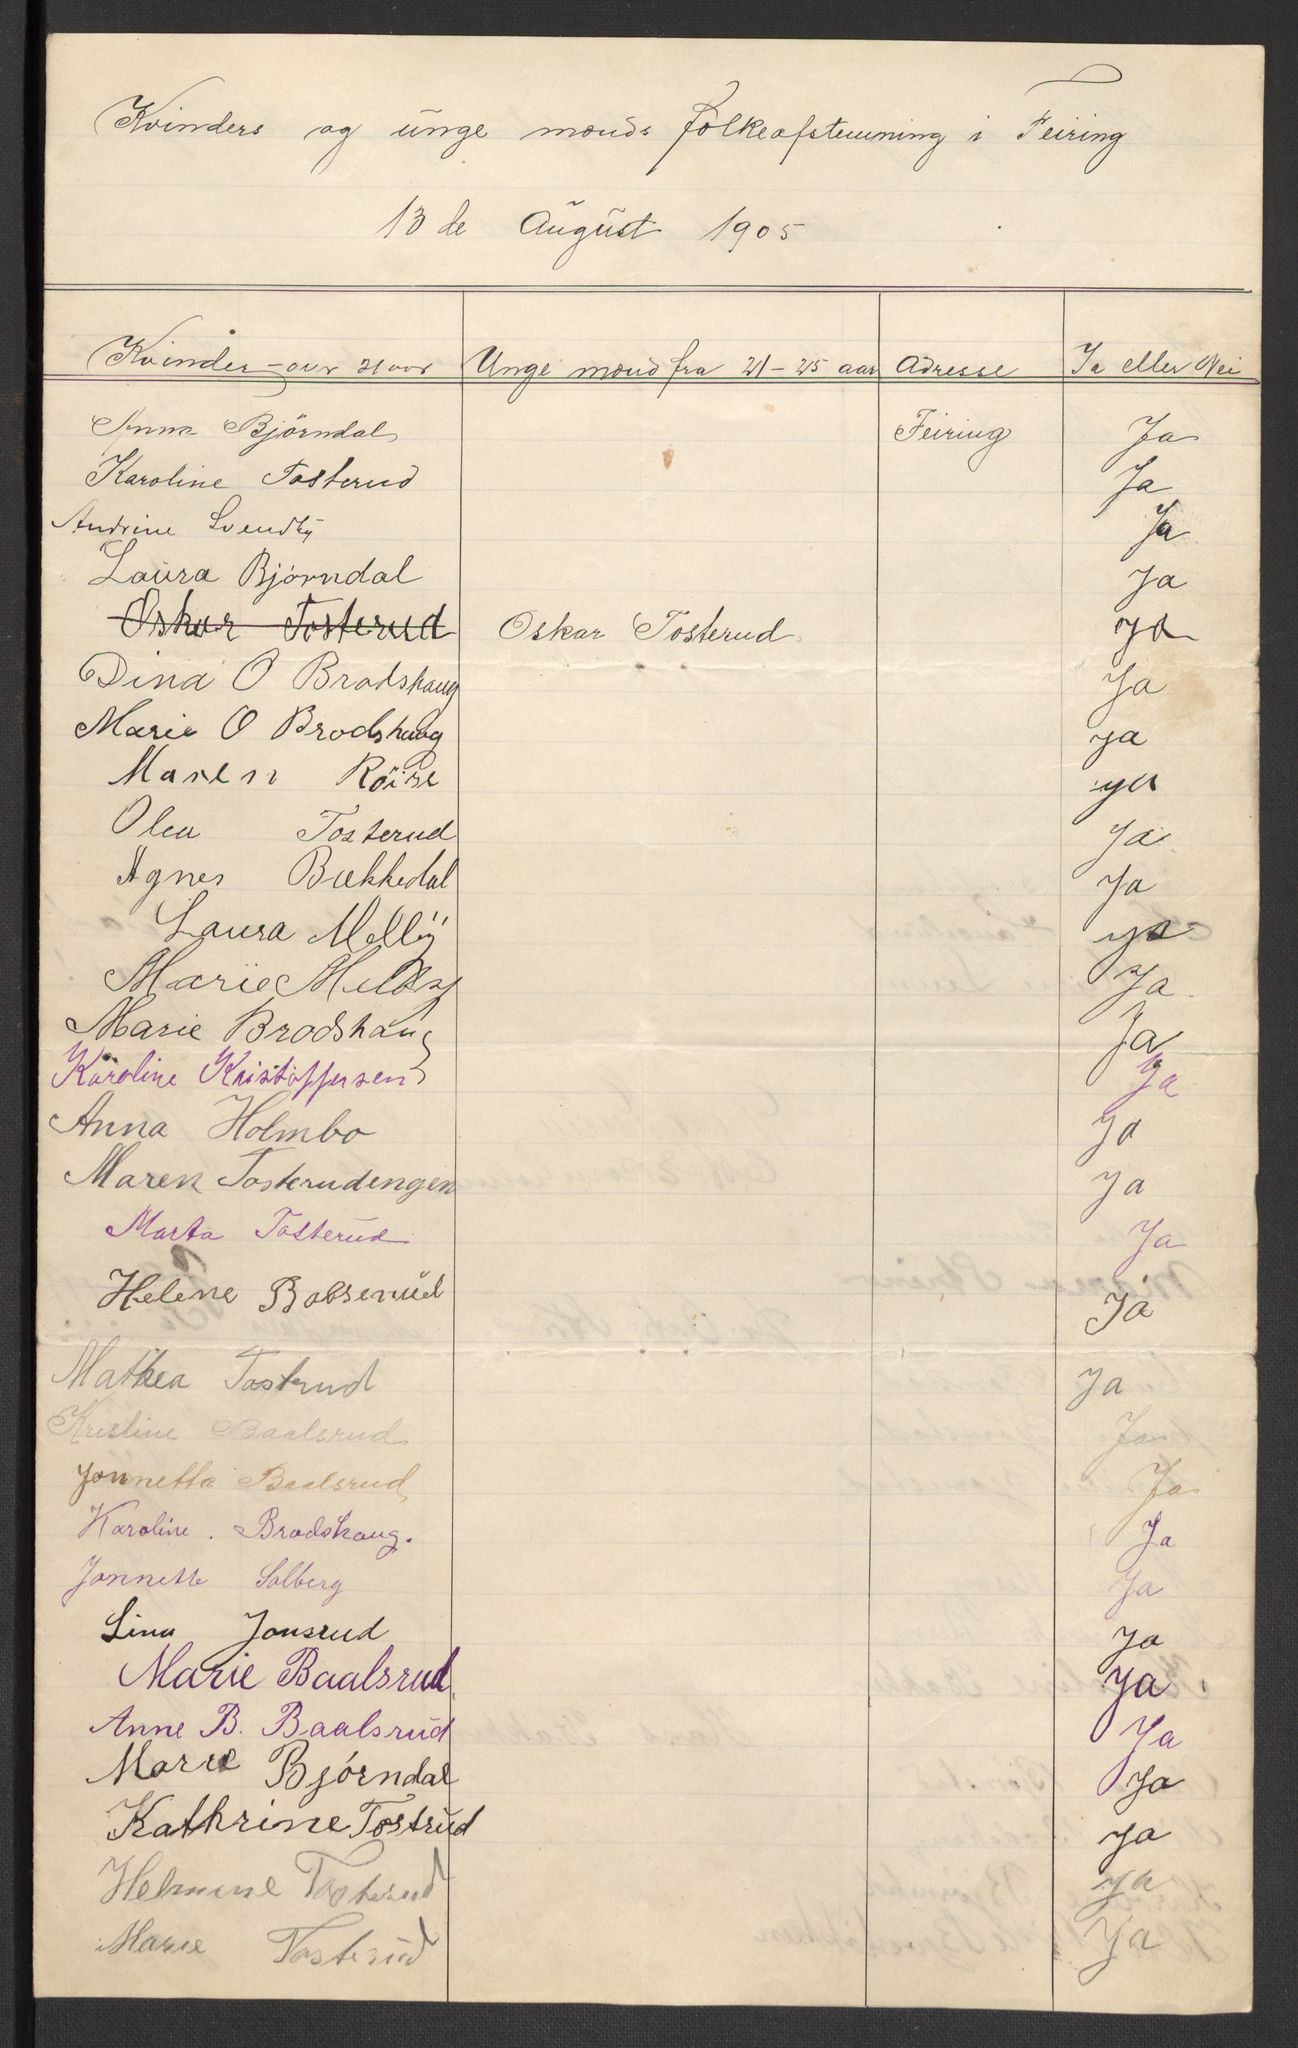 Kvinders og unge mænds folkeafstemning i Feiring
13 de August 1905
Kvinder over 21 aar Unge mænd fra 21-25 aar Adresse Ja eller Nei
Anna Björndal Feiring Ja
Karoline Tosterud Ja
Andrine Svendby Ja
Laura Bjørndal Ja
Oskar Tosterud Oskar Tosterud Ja
Dina O Brodshaug Ja
Marie O Brodshaug ja
Maren Röise ja
Olea Tosterud Ja
Agnes Bækkedal Ja
Laura Melby ja
Marie Melby Ja
Marie Brodshaug Ja
Karoline Kristoffersen Ja
Anna Holmbo Ja
Maren Tosterudengen Ja
Marta Tosterud Ja
Helene Ja
Mathea Tostrud Ja
Kristine Baalsrud Ja
Jonnetta Baalsrud Ja
Karoline . Brodshaug. Ja
Jonnette Solberg Ja
Lina Jonsrud Ja
Marie Baalsrud Ja
Anne B. Baalsrud Ja
Marie Bjórndal Ja
Kathrine Tostrud Ja
Helmine Tosterud Ja
Marie Tosterud Ja